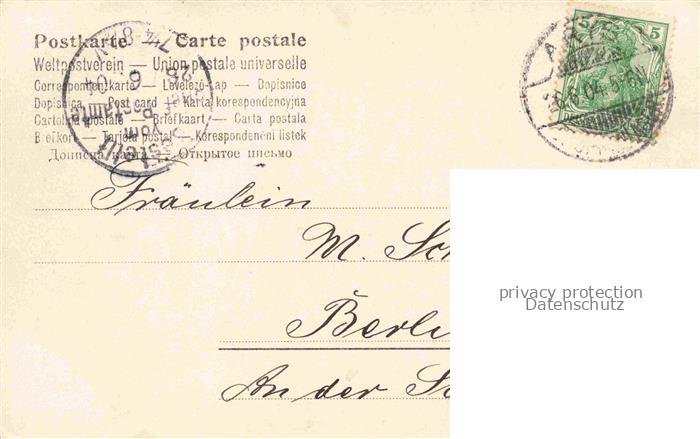 Postkarte — Carte postale
Weltpostverein — Union postale universelle
Correspondenzkarte — Levelező-Lap — Dopisnice
Dopisnica — Post card — Karta korespondencyjna
Cartolina postale — Briefkaart — Carta postala
Brefkort — Tarjeta postal — Korespondenční listek
Дописна карта — Открытое письмо
5
Fräulein
M. Sch
Berli
An der
privacy protection
Datenschutz